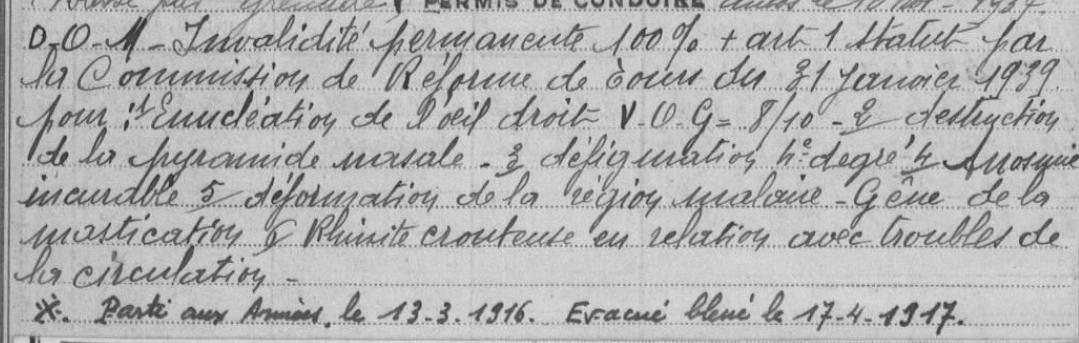 PERMIS DE CONDUIRE
D.O.M - Invalidité permanente 100% + art 1 statut par
la Commission de Réforme de Tours du 31 Janvier 1939
pour : 1º Enucléation de l'oeil droit V.O.G = 8/10 - 2 destruction
de la pyramide nasale - 3 défiguration degré 4 Anosmie
incurable 5 déformation de la région malaire - Gêne de la
mastication 6 Rhinite crouteuse en relation avec troubles de
la circulation -
※. Parti aux Armées, le 13-3-1916. Evacué blessé le 17-4-1917.